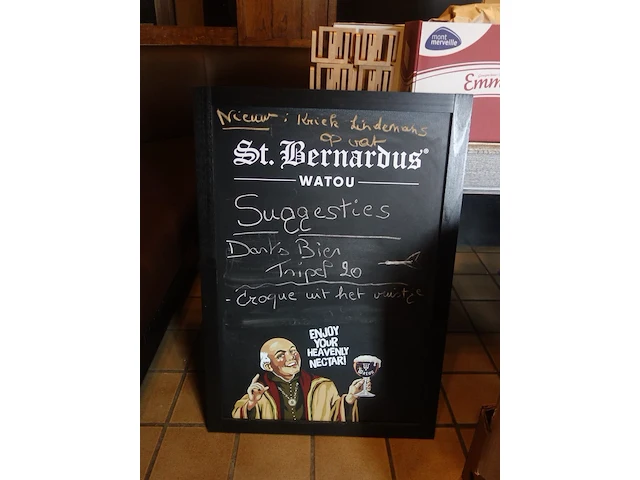 mont
merveille
Emm
Nieuw : Kriek Lindemans
op vat
St. Bernardus®
WATOU
Suggesties
Bier
Tripel 20
- Croque uit het vuistje
ENJOY
YOUR
HEAVENLY
NECTAR!